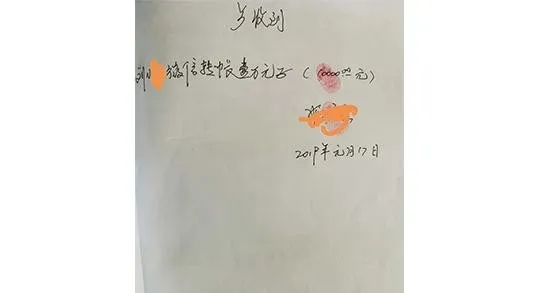 今收到
微信转帐壹万元正（10000.00元）
2019年元月17日